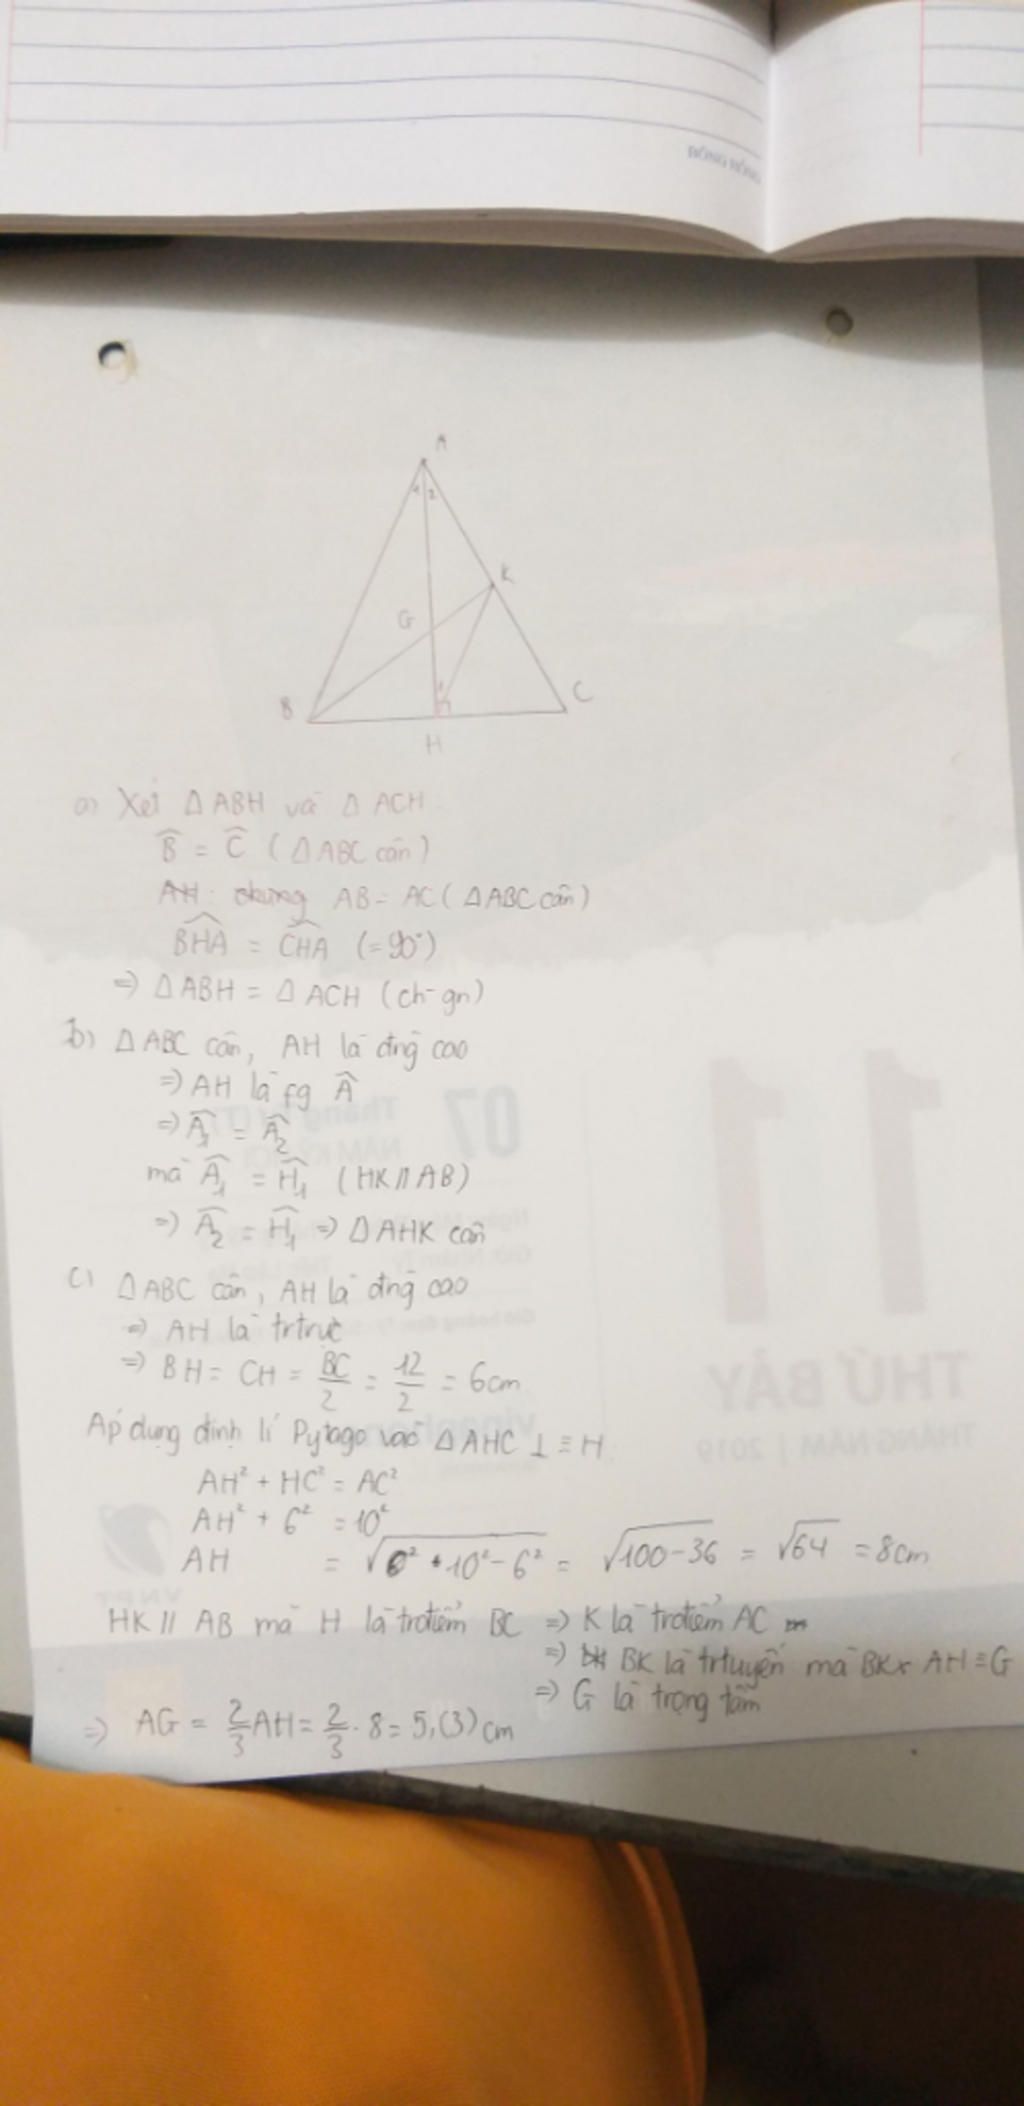 A
1 2
K
G
B
1
C
H
a) Xét △ABH và △ACH
B̂ = Ĉ (△ABC cân)
AB = AC (△ABC cân)
BHA = CHA (=90°)
=> △ABH = △ACH (ch-gn)
b) △ABC cân, AH là đng cao
=> AH là fg Â
=> Â₁ = Â₂
mà Â₁ = Ĥ₁ (HK // AB)
=> Â₂ = Ĥ₁ => △AHK cân
c) △ABC cân, AH là đng cao
=> AH là trtrực
=> BH = CH = BC/2 = 12/2 = 6cm
Áp dụng định lí Pytago vào △AHC ⊥ ≡ H
AH² + HC² = AC²
AH² + 6² = 10²
AH = √10² - 6² = √100-36 = √64 = 8cm
HK // AB mà H là trđiểm BC => K là trđiểm AC
=> BK là trtuyến mà BK x AH ≡ G
=> G là trọng tâm
=> AG = 2/3 AH = 2/3 . 8 = 5,(3) cm
07
11
THỨ BẢY
THÁNG NĂM | 2019